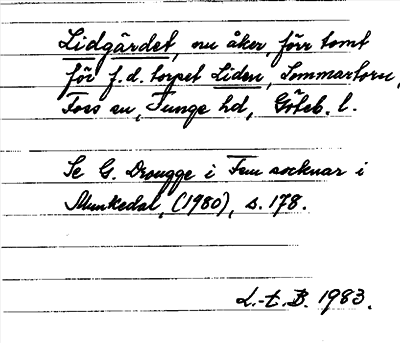 Lidgärdet, nu åker, förr tomt
för f.d. torpet Liden, Sommartorn,
Foss sn, Tunge hd, Göteb. l.
Se G. Drougge i Fem socknar i
Munkedal, (1980), s. 178.
L.-t. B. 1983.